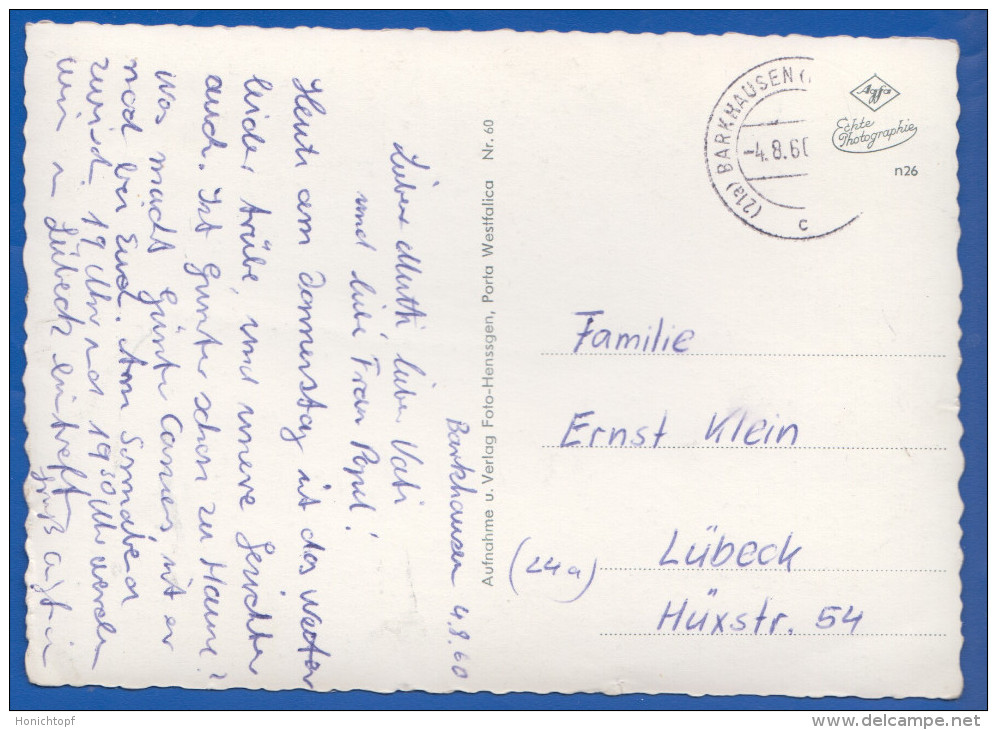 Barkhausen 4.8.60
Liebe Mutti lieber Vati
und liebe Frau
Heute am Donnerstag ist das Wetter
leider trübe, und unsere Gesichter
auch. Ist Gunter schon zu Hause?
Was macht Günter ist er
noch bei Euch. Am Sonnabend
zwisch. 19 Uhr und 19 30 Uhr werden
wir in Lübeck eintreffen
Gruß
Aufnahme u. Verlag Foto-Henssgen, Porta Westfalica Nr. 60
(21a) BARKHAUSEN (
-4.8.60
c
Agfa
Echte
Photographie
n26
Familie
Ernst Klein
(24a) Lübeck
Hüxstr. 54
Honichtopf
delcampe.net